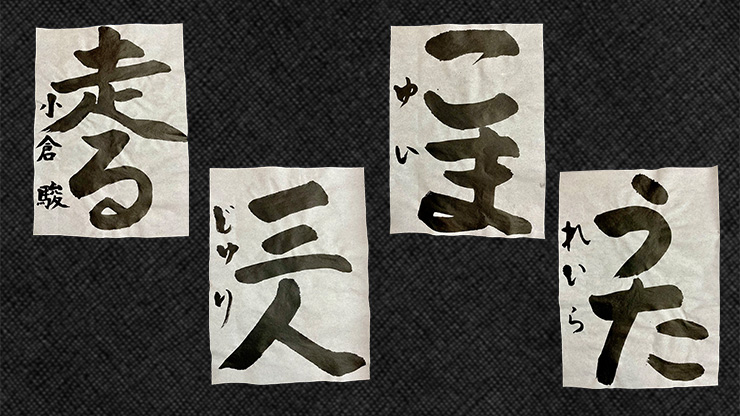 走る
小倉駿
三人
じゅり
こま
ゆい
うた
れいら